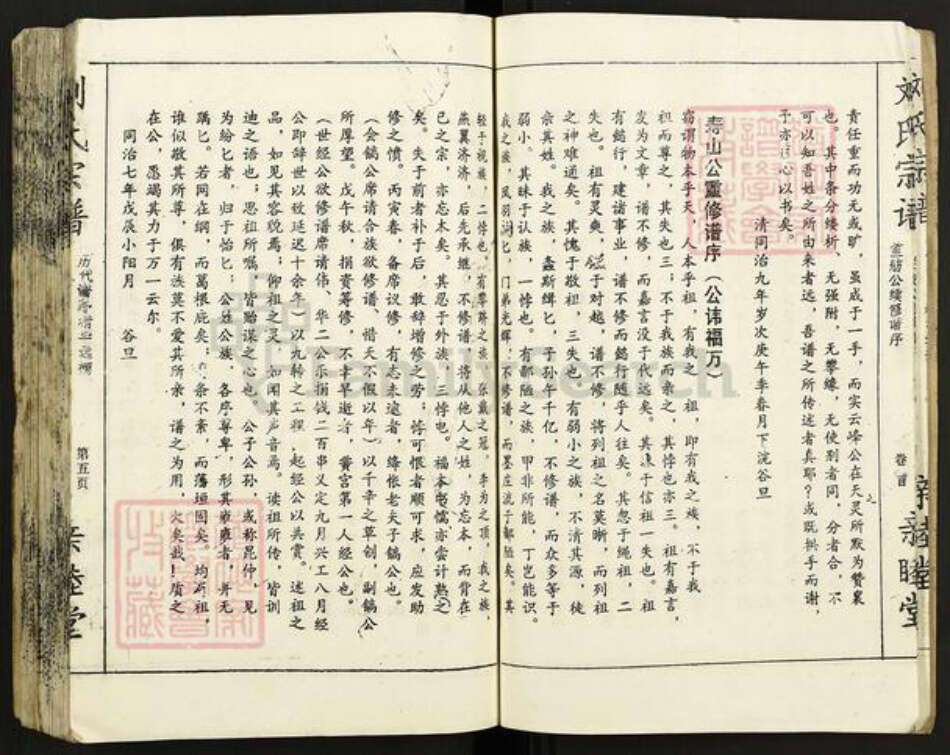 刘氏宗谱
卷首
亲睦堂
责任重而功无或旷，虽成于一手，而实云峰公在天灵所默为赞襄
也。其中条分缕析、无强附，无攀缘，无使别者同，分者合，不
可以知吾姓之所由来者远，吾谱之所传述者真耶？或既拱手而谢，
予亦心以书矣。
清同治九年岁次庚午季春月下浣谷旦
寿山公灵修谱序（公讳福万）
窃谓物本乎天，人本乎祖，有我之祖，即有我之族，不于我
祖而尊之，其失也三；不于我族而亲之，其悖也亦三。祖有嘉言，
发为文章，谱不修，而嘉言没于代远矣。其于信祖一失也。祖
有懿行，建诸事业，谱不修而懿行随乎人往矣。其忽于绳祖，二
失也。祖有灵爽，于对越，谱不修，将列祖之名莫晰，而列祖
之神难通矣。其愧于敬祖，三失也。有弱小之族，不清其源，徒
余其姓。我之族，螽斯缉匕，子孙午千亿，不修谱，而众多等于
弱小。其昧于认族，一悖也。有鄙陋之族，甲非所能，丁岂能识。
我之族，风羽，门弟光辉，不修谱，而墨庄流于鄙陋矣。其
轻于视族，二悖也。有零之族，张戴之冠，李为之顶，我之族，
燕翼济济，后先承继，不修谱，将从他人之姓，为忘本，而背在
己之宗，亦忘木矣。其忍于外族，三悖也。福本懦亦尝计熟之
矣。失于前者补于后，敢辞增修之劳；悖可恨者顺可求，应发助
修之愤。丙寅春，备席议修，有志未逮者，绛帐老夫子镐公也。
（会镐公席请合族欲修谱、惜天不假以年）以千辛之草创，副镐公
所厚望。戊午秋，捐赀筹修，不幸早逝者，黉宫第一人经公也。
（世经公欲修谱席请伟、华二公示捐钱二百串义定九月兴工八月经
公即辞世以致延迟十余年）以九转之工程，起经公以共赏。述祖之
品，如见其容貌焉；仰祖之灵，如闻其声音焉。读祖所传，皆训
迪之语也；思祖所嘱，皆贻谋之心也。公子公孙，或称昆仲，见
为纷匕者，归于怡匕；公姓公族，各序尊卑，形其雍雍者，并无
踽匕。若网在纲，而葛根庇矣；条不紊，而藩垣固矣。均为祖，
谁似敬其所尊，俱有族莫不爱其所亲，谱之为用，大矣哉！质之
在公，愿竭其力于万一云尔。
同治七年戊辰小阳月　谷旦
刘氏宗谱
第五页
亲睦堂